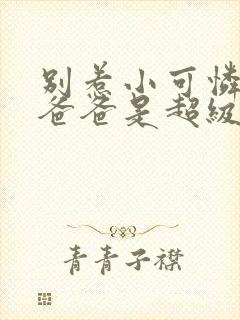 别惹小可憐
爸爸是超級
青青子襟